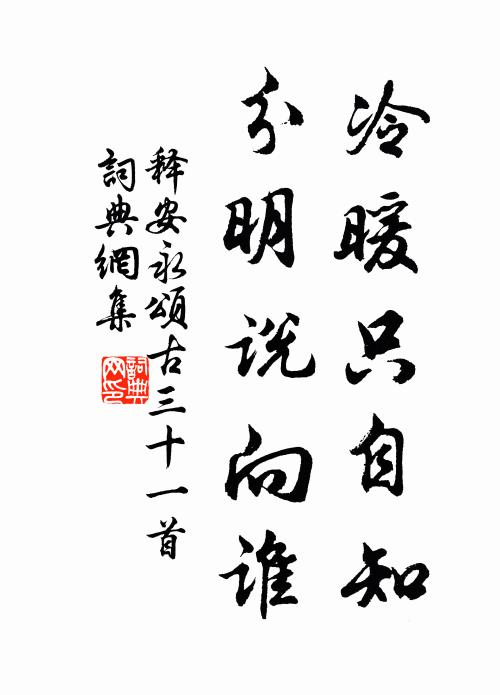 冷暖只自知
分明说向谁
释安永頌古三十一首
詞典網集
詞典網印